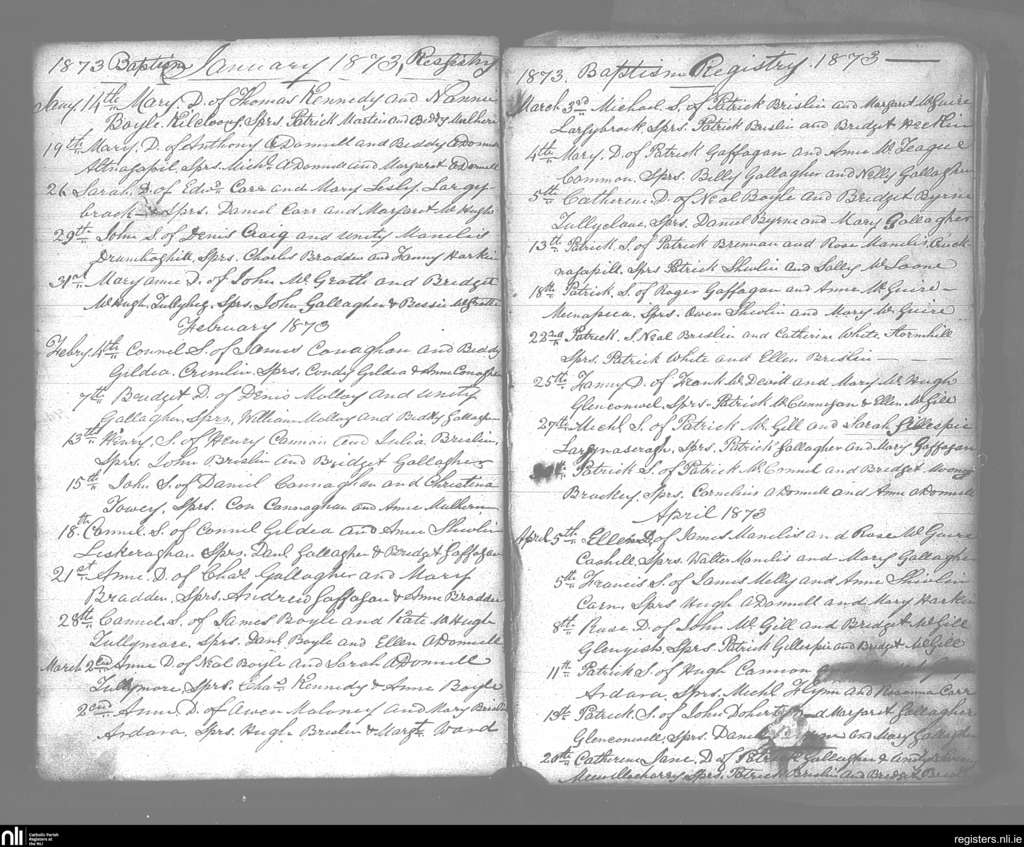 1873 Baptism January 1873, Registry
Jany 14th Mary. D. of Thomas Kennedy and Nannie
Boyle. Kilcloony. Sprs. Patrick Martin and Biddy Mulhern
19th Mary. D. of Anthony O Donnell and Biddy O Donnell
Altnagapil. Sprs. Michl O Donnell and Margaret O Donnell
26 Sarah. D. of Edwd Carr and Mary Lesly. Largy-
brack Sprs. Daniel Carr and Margaret Mc Hugh
29th John S. of Denis Craig and Unity Manelis
Drumboghill. Sprs. Charles Bradden and Fanny Harkin
31st Mary anne D. of John Mc Groth and Bridget
Mc Hugh. Sprs. John Gallagher & Bessie
February 1873
Febry 4th Connel S. of James Conaghan and Biddy
Gildea. Crumlin. Sprs. Condy Gildea & Anne Conaghan
7th Bridget D. of Denis Molloy and Unity
Gallagher. Sprs. William Molloy and Biddy Gallagher
13th Henry. S. of Henry Cannon and Julia Breslin.
Sprs. John Brislin and Bridget Gallagher
15th John S. of Daniel Cannaghan and Christina
Towey. Sprs. Con Cannaghan and Anne Mulhern
18th Connel. S. of Connel Gildea and Anne Shevlin
Liskeraghan Sprs. Danl Gallagher & Bridgt Gaffagan
21st Anne. D. of Chas. Gallagher and Mary
Bradden. Sprs. Andrew Gaffagan & Anne Bradden
28th Connel. S. of James Boyle and Kate Mc Hugh
Tullymore. Sprs. Danl Boyle and Ellen O Donnell
March 2nd Anne D. of Neal Boyle and Sarah O Donnell
Tullymore. Sprs. Chas Kennedy & Anne Boyle
2nd Anne. D. of Owen Maloney and Mary
Ardara. Sprs. Hugh Breslin & Margt Ward
1873. Baptism Registry. 1873
March 3rd Michael. S. of Patrick Brislin and Margaret McGuire
Largybrack Sprs. Patrick Brislin and Bridget Heekin
4th Mary. D. of Patrick Gaffagan and Anne Mc Teague
Common. Sprs. Billy Gallagher and Nelly Gallagher
5th Catherine D. of Neal Boyle and Bridget Byrne
Tullyclave. Sprs. Daniel Byrne and Mary Gallagher
13th Patrick. S. of Patrick Brennan and Rose Manelis.
Sprs Patrick Shevlin and Sally Mc Loone
18th Patrick. S. of Roger Gaffagan and Anne McGuire-
Sprs. Owen Shevlin and Mary McGuire
22nd Patrick. S. Neal Breslin and Catherine White. Hornhill
Sprs. Patrick White and Ellen Brislin
25th Fanny D. of Frank Mc Devitt and Mary Mc Hugh
Glenconwel. Sprs. Patrick McCunnigan & Ellen Mc Gill
27th Michl S. of Patrick Mc Gill and Sarah Gillespie
Sprs. Patrick Gallagher and Mary Gaffagan
Patrick S. of Patrick Mc Connel and Bridget
Brackey. Sprs. Cornelius O Donnell and Anne O Donnell
April 1873
April 5th Ellen D. of James Manelis and Rose McGuire
Cashell. Sprs. Walter Manelis and Mary Gallagher
5th Francis S. of James Melly and Anne Shevlin
Carn. Sprs Hugh O Donnell and Mary Harkin
8th Rose D. of John Mc Gill and Bridget McGill
Glengish Sprs. Patrick Gillespie and Bridgt McGill
11th Patrick S. of Hugh Cannon
Ardara. Sprs. Michl Flynn and Rosanna Carr
13th Patrick. S. of John Doherty and Margaret Gallagher
Glenconwell. Sprs. Daniel and Mary Gallagher
20th Catherine Jane. D. of Patrick Gallagher &
Sprs. Patrick Breslin and Bridget